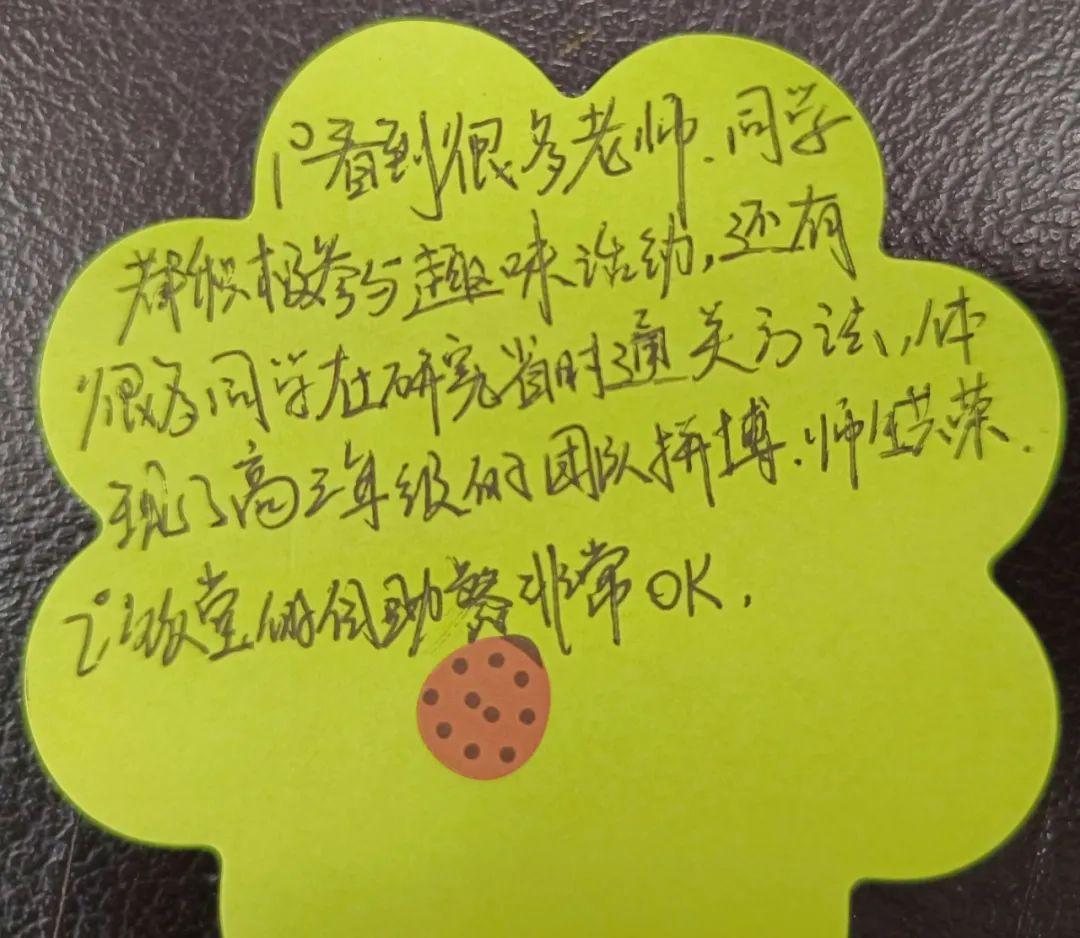 1°看到很多老师、同学
都积极参与趣味活动,还有
很多同学在研究省时通关方法,体
现了高三年级的团队拼搏、师生共荣.
2°饭堂的自助餐非常OK.